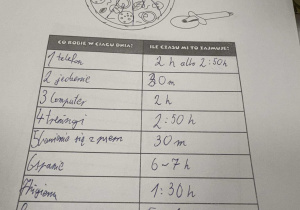 CO ROBIĘ W CIĄGU DNIA? ILE CZASU MI TO ZAJMUJE?
1 telefon 2 h albo 2:50h
2 jedzenie 30 m
3 Computer 2 h
4 treningi 2:50 h
5 bawienie się z psem 30 m
6 spanie 6-7 h
7 higiena 1:30 h